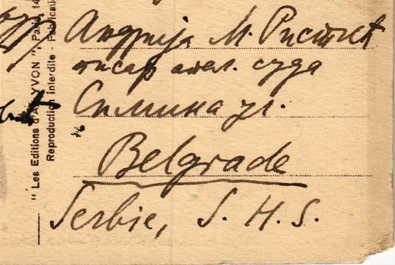 Андрија М. Ристић
писар апел. суда
Симина ул.
Belgrade
Serbie, S. H. S.
" Les Editions d'A YVON ", Paris, 14
Reproduction interdite - Publication